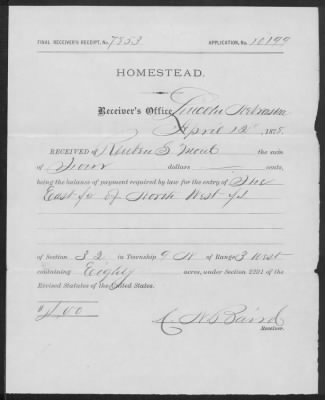 FINAL RECEIVER'S RECEIPT, No. 7853 APPLICATION, No. 10199
HOMESTEAD.
Receiver's Office, Lincoln Nebraska
April 12th 1878.
RECEIVED of Reuben S. the sum
of Four dollars cents,
being the balance of payment required by law for the entry of The
East ½ of North West ¼
of Section 32 in Township 9 N of Range 3 West
containing Eighty acres, under Section 2291 of the
Revised Statutes of the United States.
$4.00
C. N. Baird
Receiver.